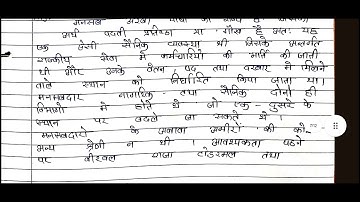 मनसब अरबी भाषा का शब्द है जिसका
अर्थ पदवी प्रतिष्ठा या श्रेणी है अतः यह
एक ऐसी सैनिक व्यवस्था थी जिसके अन्तर्गत
राजकीय सेवा में कर्मचारियों की भर्ति की जाती
थी और उनके वेतन पद तथा दरबार में मिलने
वाले स्थान को निर्धारित किया जाता था।
मनसबदार नागरिक तथा सैनिक दोनों ही
विभागों में होते थे जो एक-दूसरे के
स्थान पर बदले जा सकते थे।
मनसबदारो के अलावा अमीरों की को-
अन्य श्रेणी न थी। आवश्यकता पड़ने
पर बीरबल राजा टोडरमल तथा